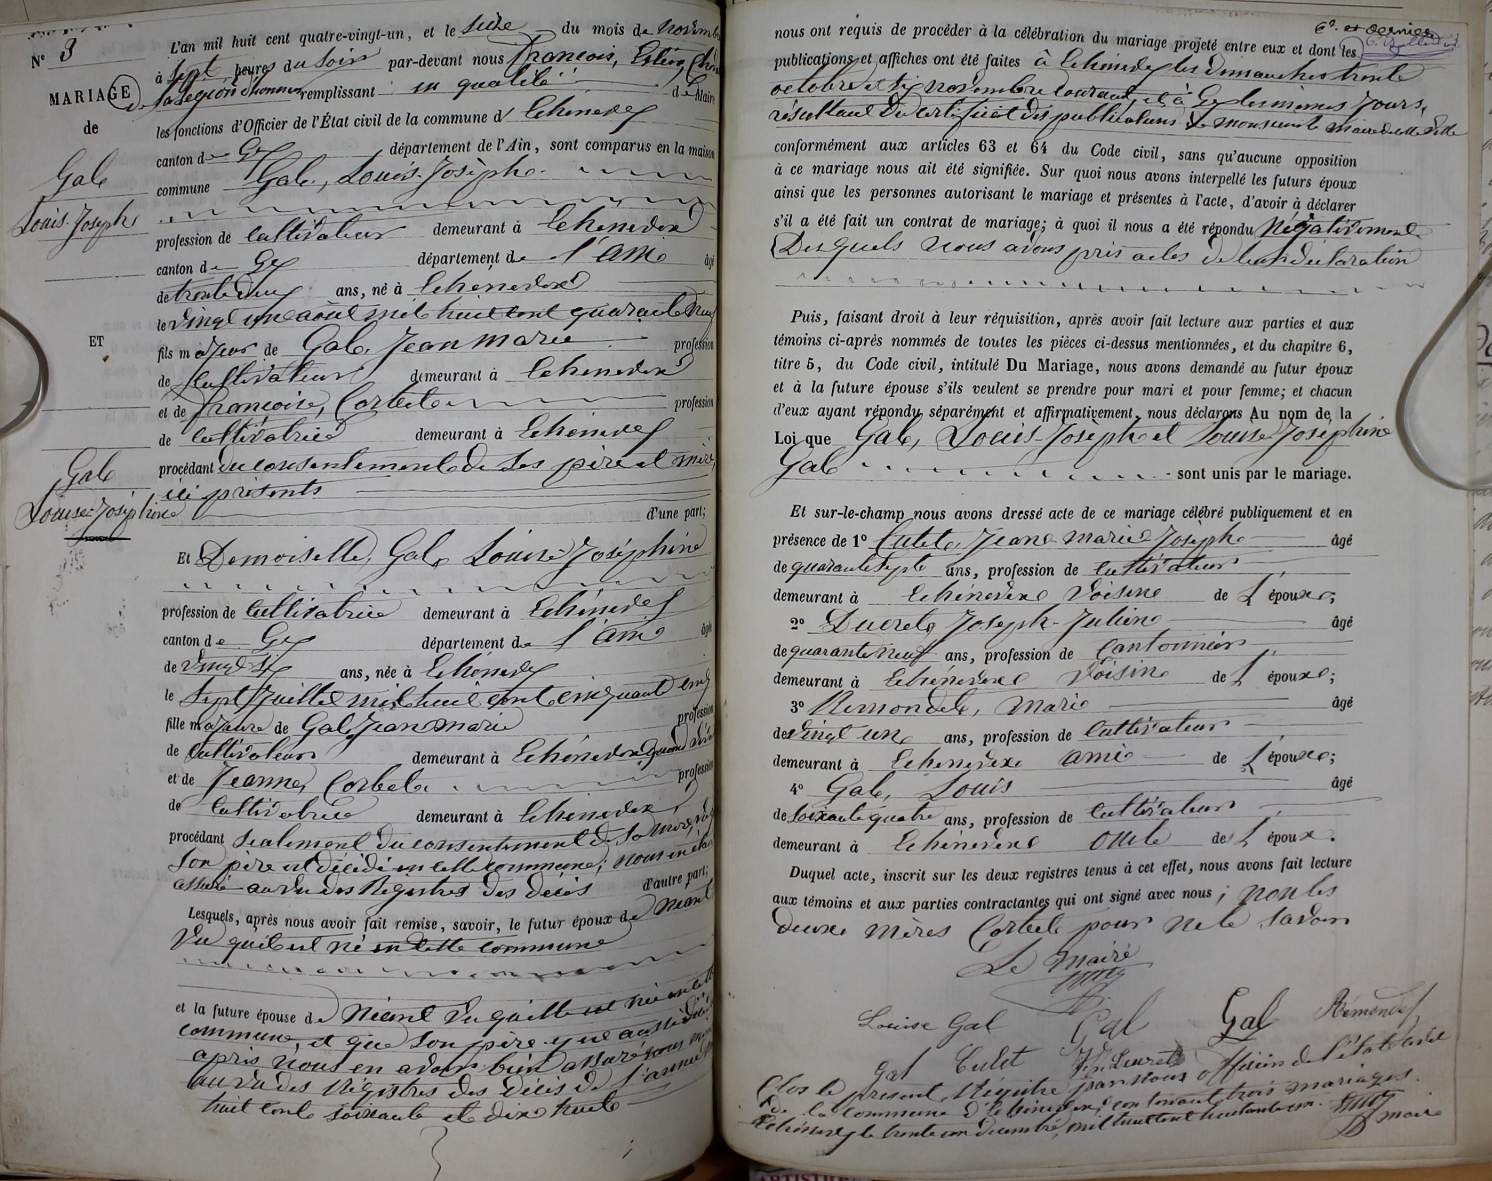 N° 3
MARIAGE
de
Gal
Louis-Joseph
ET
Gal
Louise-Joséphine
L'an mil huit cent quatre-vingt-un, et le seize du mois de novembre
à sept heures du soir par-devant nous François, Estier,
de la légion d'honneur remplissant en qualité de Maire
les fonctions d'Officier de l'État civil de la commune d' Echenevex
canton de Gex département de l'Ain, sont comparus en la maison
commune Gal, Louis-Josèphe
profession de cultivateur demeurant à Echenevex
canton de Gex département de l'Ain âgé
de trente deux ans, né à Echenevex
le vingt une août mil huit cent quarante neuf
fils majeur de Gal, Jean marie profession
de cultivateur demeurant à Echenevex
et de françoise, Corbet profession
de cultivatrice demeurant à Echenevex
procédant du consentement de ses père et mère
ici présents
d'une part;
Et Demoiselle, Gal Louise Joséphine
profession de cultivatrice demeurant à Echénevex
canton de Gex département de l'Ain âgée
de vingt six ans, née à Echénevex
le sept juillet mil huit cent cinquant cinq
fille majeure de Gal Jean marie profession
de cultivateur demeurant à Echénevex quand vivait
et de Jeanne, Corbet profession
de cultivatrice demeurant à Echenevex
procédant seulement du consentement de sa mère,
son père est décédé en cette commune; nous
assuré au vu des Régistres des décès d'autre part;
Lesquels, après nous avoir fait remise, savoir, le futur époux de néant
vu qu'il est né en cette commune
et la future épouse de Néant vu qu'elle est née en cette
commune, et que son père y est aussi décédé
après nous en avoir bien assuré
au vu des Régistres des décès de l'année
huit cent soixante et dix huit
6°. et dernier
nous ont requis de procéder à la célébration du mariage projeté entre eux et dont les
publications et affiches ont été faites à Echenevex les dimanches trente
octobre et six novembre courant, et à Gex les mêmes jours,
résultant du certificat des publications de monsieur le maire de cette ville
conformément aux articles 63 et 64 du Code civil, sans qu'aucune opposition
à ce mariage nous ait été signifiée. Sur quoi nous avons interpellé les futurs époux
ainsi que les personnes autorisant le mariage et présentes à l'acte, d'avoir à déclarer
s'il a été fait un contrat de mariage; à quoi il nous a été répondu Négativement
Desquels nous avons pris actes de leur déclaration
Puis, faisant droit à leur réquisition, après avoir fait lecture aux parties et aux
témoins ci-après nommés de toutes les pièces ci-dessus mentionnées, et du chapitre 6,
titre 5, du Code civil, intitulé Du Mariage, nous avons demandé au futur époux
et à la future épouse s'ils veulent se prendre pour mari et pour femme; et chacun
d'eux ayant répondu séparément et affirmativement, nous déclarons Au nom de la
Loi que Gal, Louis-Josèph et Louise-Joséphine
Gal sont unis par le mariage.
Et sur-le-champ nous avons dressé acte de ce mariage célébré publiquement et en
présence de 1° Cutet, Jean marie Josèphe âgé
de quarante sept ans, profession de cultivateur
demeurant à Echénevex voisin de l'époux;
2° Ducret, Joseph-Julien âgé
de quarante neuf ans, profession de cantonnier
demeurant à Echénevex voisin de l'époux;
3° Rémondet, Marie âgé
de vingt un ans, profession de cultivateur
demeurant à Echenevex ami de l'époux;
4° Gal, Louis âgé
de soixante quatre ans, profession de cultivateur
demeurant à Echénevex oncle de l'époux.
Duquel acte, inscrit sur les deux registres tenus à cet effet, nous avons fait lecture
aux témoins et aux parties contractantes qui ont signé avec nous; non les
deux mères Corbet pour ne le savoir
Le Maire
Louise Gal Gal Gal Rémondet
gal Cutet Jh Ducret
Clos le présent Régistre par nous officier de l'état civil
de la commune d'Echenevex, contenant trois mariages.
Echénevex le trente un décembre, mil huit cent huitante un.
maire